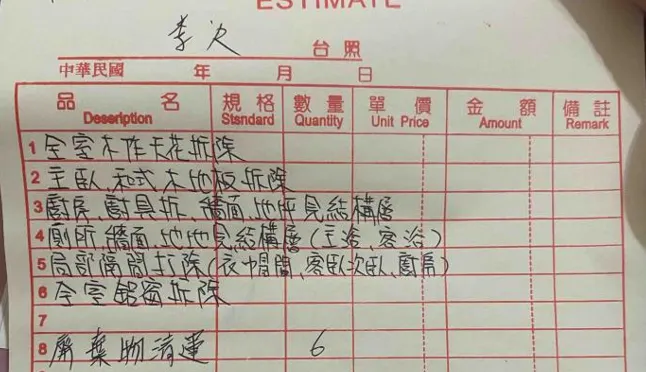 ESTIMATE
李次 台照
中華民國 年 月 日
品名 規格 數量 單價 金額 備註
Deseription Stsndard Quantity Unit Price Amount Remark
1 全室木作天花拆除
2 主臥、和式木地板拆除
3 廚房、廚具拆、牆面、地坪見結構層
4 廁所、牆面、地地見結構層(主浴、客浴)
5 局部隔間打除(衣帽間、客臥次臥、廚房)
6 全室鋁窗拆除
7
8 廢棄物清運 6